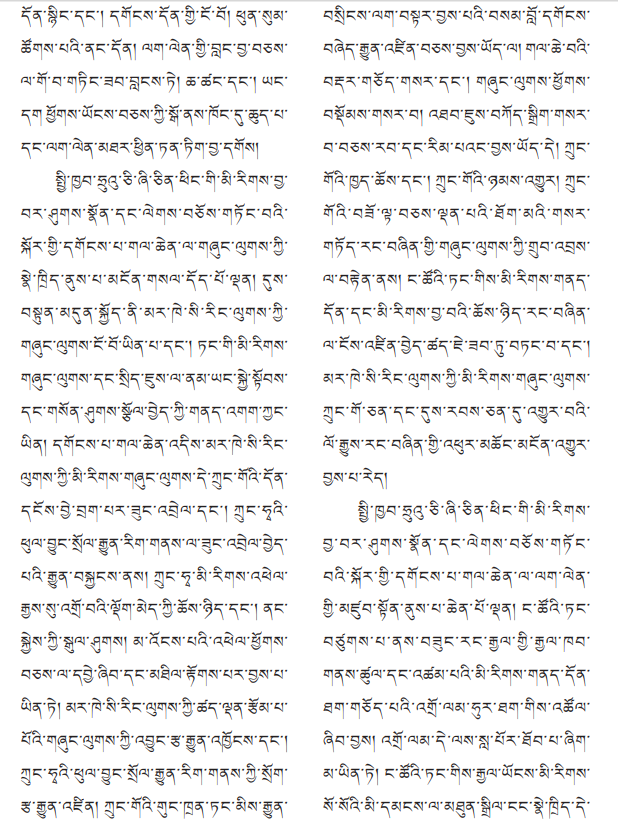 དོན་སྙིང་དང་། དགོངས་དོན་གྱི་ངོ་བོ། ཕུན་སུམ་
ཚོགས་པའི་ནང་དོན། ལག་ལེན་གྱི་བླང་བྱ་བཅས་
ལ་གོ་བ་གཏིང་ཟབ་བླངས་ཏེ། ཆ་ཚང་དང་། ཡང་
དག ཕྱོགས་ཡོངས་བཅས་ཀྱི་སྒོ་ནས་ཁོང་དུ་ཆུད་པ་
དང་ལག་ལེན་མཐར་ཕྱིན་ཏན་ཏིག་བྱ་དགོས།
སྤྱི་ཁྱབ་ཧྲུའུ་ཅི་ཞི་ཅིན་ཕིང་གི་མི་རིགས་བྱ་
བར་ཤུགས་སྣོན་དང་ལེགས་བཅོས་གཏོང་བའི་
སྐོར་གྱི་དགོངས་པ་གལ་ཆེན་ལ་གཞུང་ལུགས་ཀྱི་
སྣེ་ཁྲིད་ནུས་པ་མངོན་གསལ་དོད་པོ་ལྡན། དུས་
བསྟུན་མདུན་སྐྱོད་ནི་མར་ཁེ་སི་རིང་ལུགས་ཀྱི་
གཞུང་ལུགས་ངོ་བོ་ཡིན་པ་དང་། ཏང་གི་མི་རིགས་
གཞུང་ལུགས་དང་སྲིད་ཇུས་ལ་ནམ་ཡང་སྐྱེ་སྟོབས་
དང་གསོན་ཤུགས་སྩོལ་བྱེད་ཀྱི་གནད་འགག་ཀྱང་
ཡིན། དགོངས་པ་གལ་ཆེན་འདིས་མར་ཁེ་སི་རིང་
ལུགས་ཀྱི་མི་རིགས་གཞུང་ལུགས་དེ་ཀྲུང་གོའི་དོན་
དངོས་བྱེ་བྲག་པར་ཟུང་འབྲེལ་དང་། ཀྲུང་ཧྭའི་
ཕུལ་བྱུང་སྲོལ་རྒྱུན་རིག་གནས་ལ་ཟུང་འབྲེལ་བྱེད་
པའི་རྒྱུན་བསྐྱངས་ནས། ཀྲུང་ཧྭ་མི་རིགས་འཕེལ་
རྒྱས་སུ་འགྲོ་བའི་ལྡོག་མེད་ཀྱི་ཆོས་ཉིད་དང་། ནང་
སྐྱེས་ཀྱི་སྐུལ་ཤུགས། མ་འོངས་པའི་འཕེལ་ཕྱོགས་
བཅས་ལ་དབྱེ་ཞིབ་དང་མཐིལ་རྟོགས་པར་བྱས་པ་
ཡིན་ཏེ། མར་ཁེ་སི་རིང་ལུགས་ཀྱི་ཚད་ལྡན་རྩོམ་པ་
པོའི་གཞུང་ལུགས་ཀྱི་འབྱུང་རྩ་རྒྱུན་འཁྱོངས་དང་།
ཀྲུང་ཧྭའི་ཕུལ་བྱུང་སྲོལ་རྒྱུན་རིག་གནས་ཀྱི་སྲོག་
རྩ་རྒྱུན་འཛིན། ཀྲུང་གོའི་གུང་ཁྲན་ཏང་མིས་རྒྱུན་
བསྲིངས་ལག་བསྟར་བྱས་པའི་བསམ་བློ་དགོངས་
བཞེད་རྒྱུན་འཛིན་བཅས་བྱས་ཡོད་ལ། གལ་ཆེ་བའི་
བརྡར་གཅོད་གསར་དང་། གཞུང་ལུགས་ཕྱོགས་
བསྡོམས་གསར་བ། འཐབ་ཇུས་བཀོད་སྒྲིག་གསར་
བ་བཅས་རབ་དང་རིམ་པའང་བྱས་ཡོད་དེ། ཀྲུང་
གོའི་ཁྱད་ཆོས་དང་། ཀྲུང་གོའི་ཉམས་འགྱུར། ཀྲུང་
གོའི་བཟོ་ལྟ་བཅས་ལྡན་པའི་ཐོག་མའི་གསར་
གཏོད་རང་བཞིན་གྱི་གཞུང་ལུགས་ཀྱི་གྲུབ་འབྲས་
ལ་བརྟེན་ནས། ང་ཚོའི་ཏང་གིས་མི་རིགས་གནད་
དོན་དང་མི་རིགས་བྱ་བའི་ཆོས་ཉིད་རང་བཞིན་
ལ་ངོས་འཛིན་བྱེད་ཚད་ཇེ་ཟབ་ཏུ་བཏང་བ་དང་།
མར་ཁེ་སི་རིང་ལུགས་ཀྱི་མི་རིགས་གཞུང་ལུགས་
ཀྲུང་གོ་ཅན་དང་དུས་རབས་ཅན་དུ་འགྱུར་བའི་
ལོ་རྒྱུས་རང་བཞིན་གྱི་འཕུར་མཆོང་མངོན་འགྱུར་
བྱས་པ་རེད།
སྤྱི་ཁྱབ་ཧྲུའུ་ཅི་ཞི་ཅིན་ཕིང་གི་མི་རིགས་
བྱ་བར་ཤུགས་སྣོན་དང་ལེགས་བཅོས་གཏོང་
བའི་སྐོར་གྱི་དགོངས་པ་གལ་ཆེན་ལ་ལག་ལེན་
གྱི་མཛུབ་སྟོན་ནུས་པ་ཆེན་པོ་ལྡན། ང་ཚོའི་ཏང་
བཙུགས་པ་ནས་བཟུང་རང་རྒྱལ་གྱི་རྒྱལ་ཁབ་
གནས་ཚུལ་དང་འཚམ་པའི་མི་རིགས་གནད་དོན་
ཐག་གཅོད་པའི་འགྲོ་ལམ་ཧུར་ཐག་གིས་འཚོལ་
ཞིབ་བྱས། འགྲོ་ལམ་དེ་ལས་སླ་པོར་ཐོབ་པ་ཞིག་
མ་ཡིན་ཏེ། ང་ཚོའི་ཏང་གིས་རྒྱལ་ཡོངས་མི་རིགས་
སོ་སོའི་མི་དམངས་ལ་མཐུན་སྒྲིལ་ངང་སྣེ་ཁྲིད་དེ་